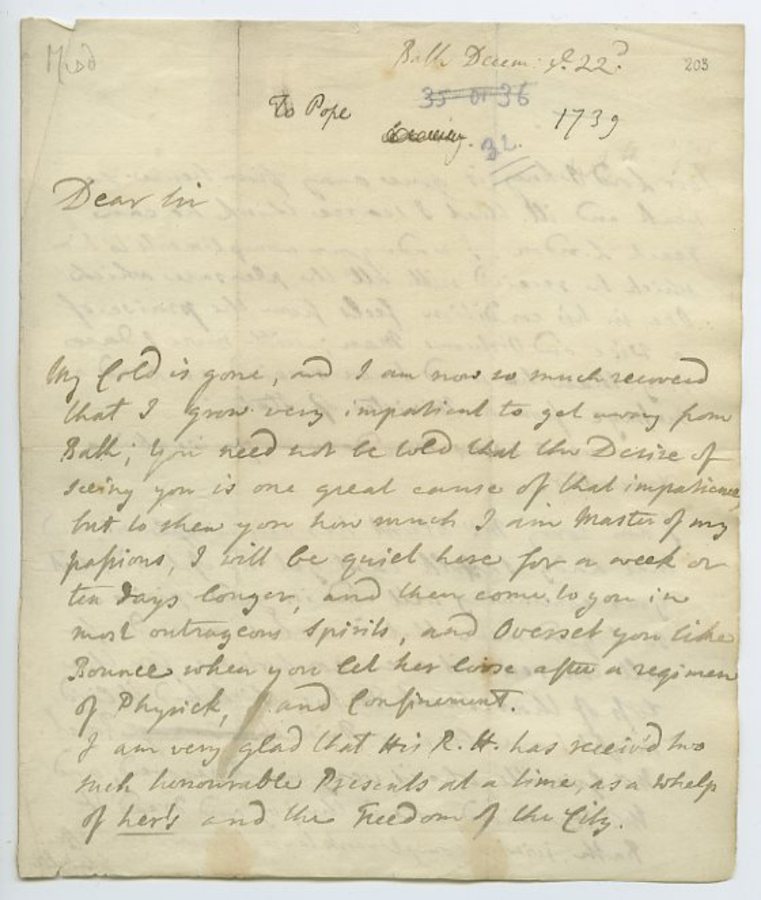 Bath Decem: ye. 22d.
203
To Pope
35 or 36
1739
32.
Dear Sir
My Cold is gone, and I am now so much recoverd
that I grow very impatient to get away from
Bath; you need not be told that the Desire of
seeing you is one great cause of that impatience,
but to shew you how much I am Master of my
passions, I will be quiet here for a week or
ten days longer, and then come to you in
most outrageous spirits, and Overset you like
Bounce when you let her loose after a regimen
of Physick, and Confinement.
I am very glad that His R. H. has receiv'd two
such honourable Presents at a time, as a whelp
of hers and the Freedom of the City.